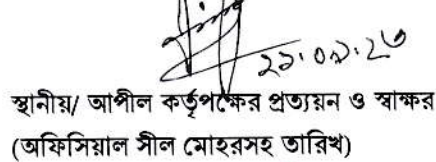 স্থানীয়/ আপীল কর্তৃপক্ষের প্রত্যয়ন ও স্বাক্ষর
(অফিসিয়াল সীল মোহরসহ তারিখ)